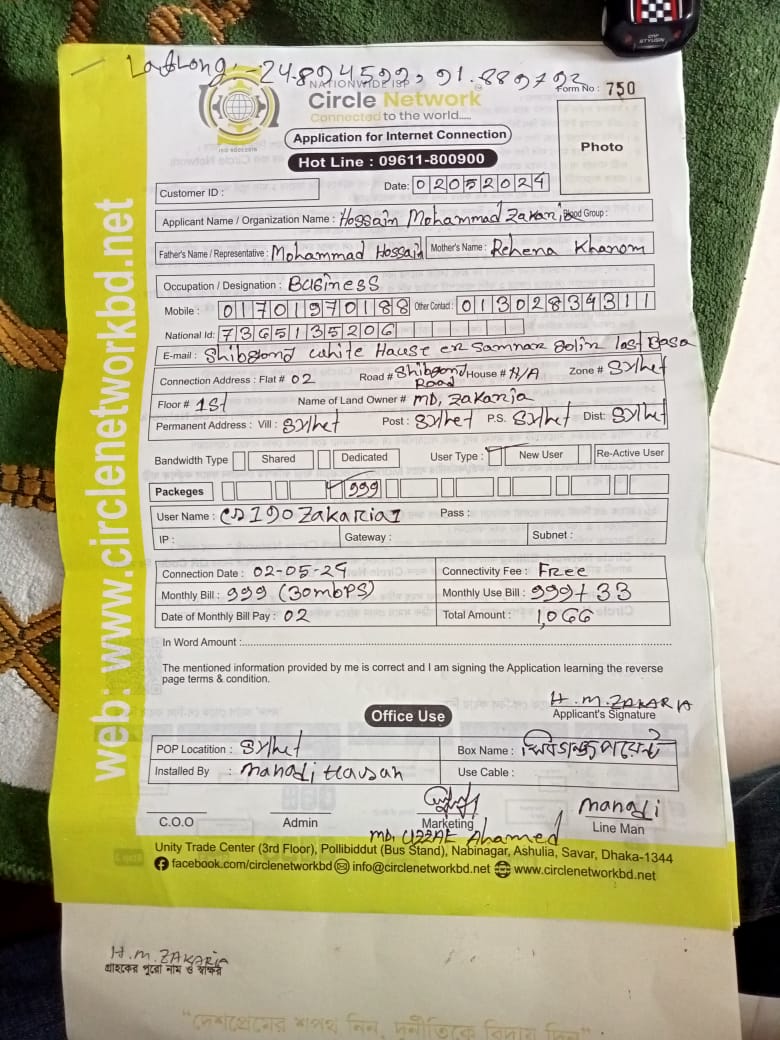 Lat Long, 24.894592, 91.889792
NATIONWIDE ISP
Circle Network
Connected to the world.....
ISO 9001:2015
Form No : 750
Application for Internet Connection
Hot Line : 09611-800900
Photo
Customer ID :
Date: 02052024
Applicant Name / Organization Name : Hossain Mohammad Zakaria Blood Group :
Father's Name / Representative : Mohammad Hossain Mother's Name : Rehena Khanom
Occupation / Designation : Business
Mobile : 01701970188 Other Contact : 01302834311
National Id: 7365135206
E-mail : Shibgond white Hause er Samnar golir last Basa
Connection Address : Flat # 02 Road # Shibgond Road House # N/A Zone # Sylhet
Floor # 1st Name of Land Owner # MD, Zakaria
Permanent Address : Vill : Sylhet Post : Sylhet P.S. Sylhet Dist: Sylhet
Bandwidth Type Shared Dedicated User Type : New User Re-Active User
Packeges 999
User Name : Zakaria1 Pass :
IP : Gateway : Subnet :
Connection Date : 02-05-24 Connectivity Fee : Free
Monthly Bill : 999 (30mbPS) Monthly Use Bill : 999+33
Date of Monthly Bill Pay : 02 Total Amount : 1,066
In Word Amount :
The mentioned information provided by me is correct and I am signing the Application learning the reverse
page terms & condition.
H.M.ZAKARIA
Applicant's Signature
Office Use
POP Locatition : Sylhet Box Name : পয়েন্ট
Installed By : Use Cable :
C.O.O Admin Marketing Line Man
Ahamed
Unity Trade Center (3rd Floor), Pollibiddut (Bus Stand), Nabinagar, Ashulia, Savar, Dhaka-1344
facebook.com/circlenetworkbd info@circlenetworkbd.net www.circlenetworkbd.net
web: www.circlenetworkbd.net
H.M.ZAKARIA
গ্রাহকের পুরো নাম ও স্বাক্ষর
"দেশপ্রেমের শপথ নিন, দুর্নীতিকে বিদায় দিন"